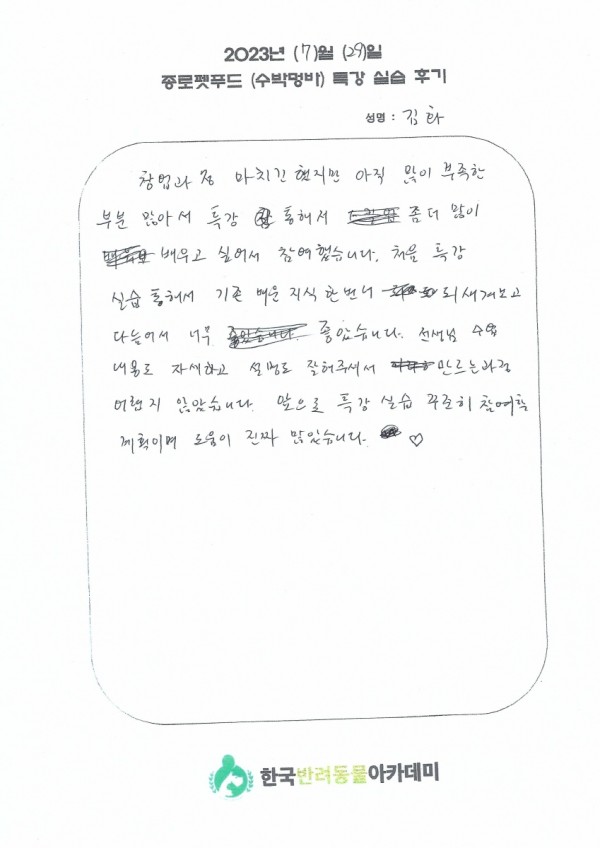 2023년 (7)월 (29)일
종로펫푸드 (수박멍바) 특강 실습 후기
성명 : 김화
창업과정 마치긴 했지만 아직 많이 부족한
부분 많아서 특강 통해서 좀더 많이
배우고 싶어서 참여했습니다. 처음 특강
실습 통해서 기존 배운 지식 한번더 되새겨보고
다늘어서 너무 좋았습니다. 선생님 수업
내용도 자세하고 설명도 잘해주셔서 만드는과정
어렵지 않았습니다. 앞으로 특강 실습 꾸준히 참여할
계획이며 도움이 진짜 많았습니다. ♡
한국반려동물아카데미